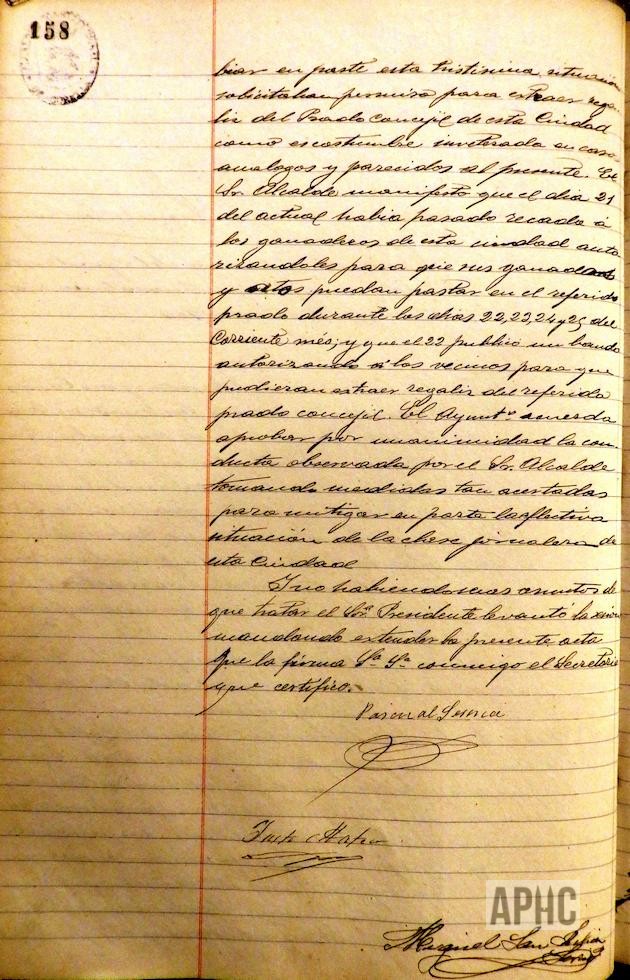 158
biar en parte esta tristisima situación
solicitaban permiso para extraer rega
liz del Prado concejil de esta Ciudad
como es costumbre inveterada en casos
analogos y parecidos al presente. El
Sr. Alcalde manifestó que el dia 21
del actual habia pasado recado á
los ganaderos de esta ciudad auto
rizandoles para que sus ganados
y puedan pastar en el referido
prado durante los dias 22, 23, 24 y 25 del
Corriente més; y que el 22 publicó un bando
autorizando á los vecinos para que
pudieran extraer regaliz del referido
prado concejil. El Ayuntº acuerda
aprobar por unanimidad la con
ducta observada por el Sr. Alcalde
tomando medidas tan acertadas
para mitigar en parte la aflictiva
situación de la clase jornalera de
esta Ciudad
Y no habiendo mas asuntos de
que tratar el Sor. Presidente levantó la sesion
mandando extender la presente acta
que la firma Sª Sª conmigo el Secretario
que certifico.
Pascual
Justo
APHC
Miguel San